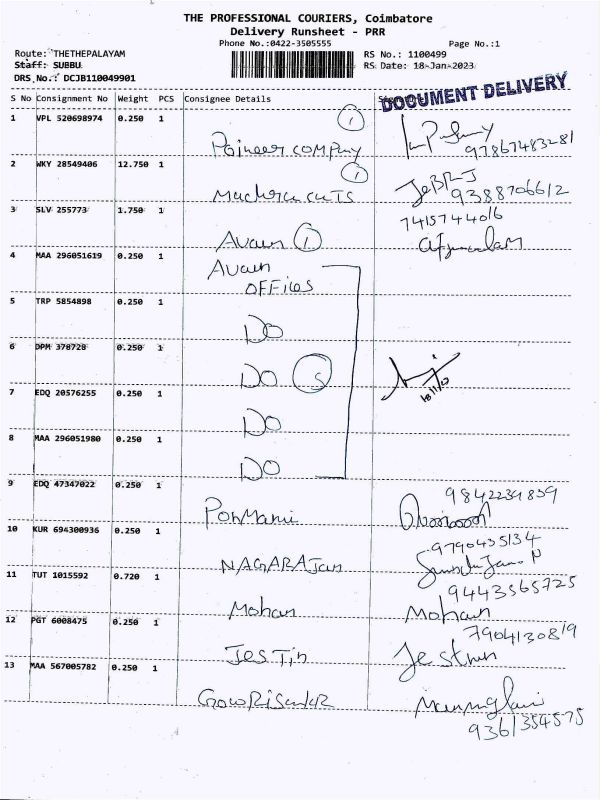 THE PROFESSIONAL COURIERS, Coimbatore
Delivery Runsheet - PRR
Phone No.:0422-3505555
Page No.:1
Route: THETHEPALAYAM
RS No.: 1100499
Staff: SUBBU
RS Date: 18-Jan-2023
DRS No.: DCJB110049901
DOCUMENT DELIVERY
S No Consignment No Weight PCS Consignee Details
1 VPL 520698974 0.250 1
1
Poineer company
97867483281
2 WKY 28549406 12.750 1
1
JeBRJ
9388706612
3 SLV 255773 1.750 1
7415744016
Avain 1
4 MAA 296051619 0.250 1
Avain
OFFices
5 TRP 5854898 0.250 1
DO
6 DPM 378728 0.250 1
DO 5
18/1/23
7 EDQ 20576255 0.250 1
DO
8 MAA 296051980 0.250 1
DO
9 EDQ 47347022 0.250 1
9842239859
Ponmani
10 KUR 694300936 0.250 1
9790435134
NAGARAJan
11 TUT 1015592 0.720 1
9443565725
Mohan Mohan
12 PGT 6008475 0.250 1
7904130819
JesTin Jestin
13 MAA 567005782 0.250 1
GowRisankR
9361354575